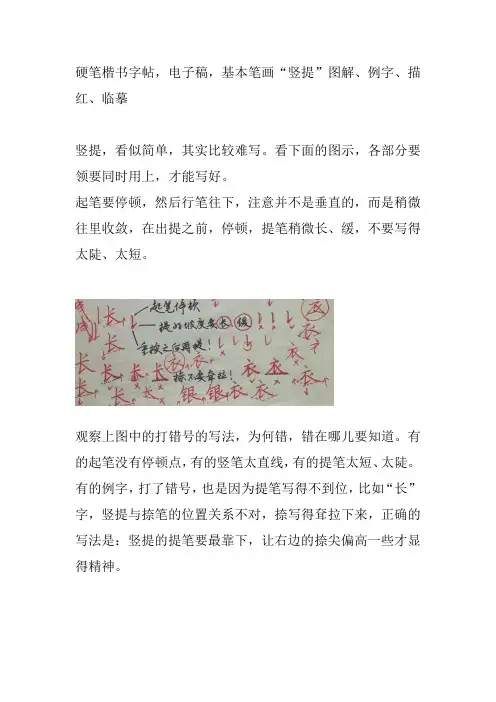 硬笔楷书字帖，电子稿，基本笔画“竖提”图解、例字、描
红、临摹
竖提，看似简单，其实比较难写。看下面的图示，各部分要
领要同时用上，才能写好。
起笔要停顿，然后行笔往下，注意并不是垂直的，而是稍微
往里收敛，在出提之前，停顿，提笔稍微长、缓，不要写得
太陡、太短。
起笔停顿
长 提的坡度要长 缓
长 重按之后再提！
衣 衣
长 长 长 衣 衣 捺不要耷拉！ 衣 衣
长 长 银 银 衣 衣
观察上图中的打错号的写法，为何错，错在哪儿要知道。有
的起笔没有停顿点，有的竖笔太直线，有的提笔太短、太陡。
有的例字，打了错号，也是因为提笔写得不到位，比如“长”
字，竖提与捺笔的位置关系不对，捺写得耷拉下来，正确的
写法是：竖提的提笔要最靠下，让右边的捺尖偏高一些才显
得精神。